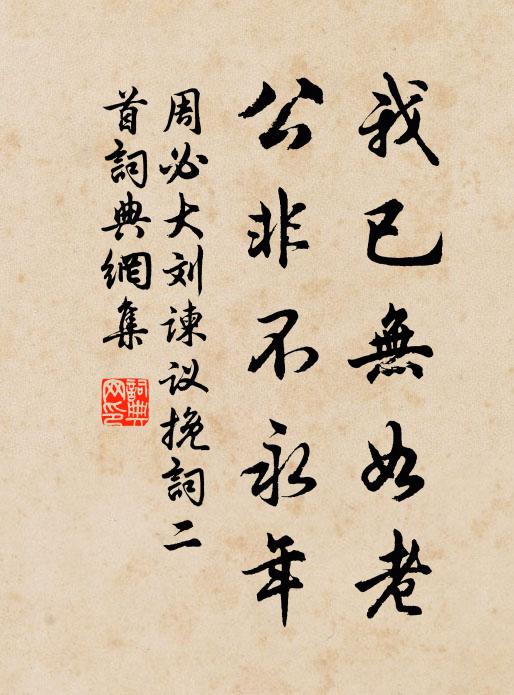 我已無如老
公非不永年
周必大刘諫议挽詞二
首詞典網集
詞典网印